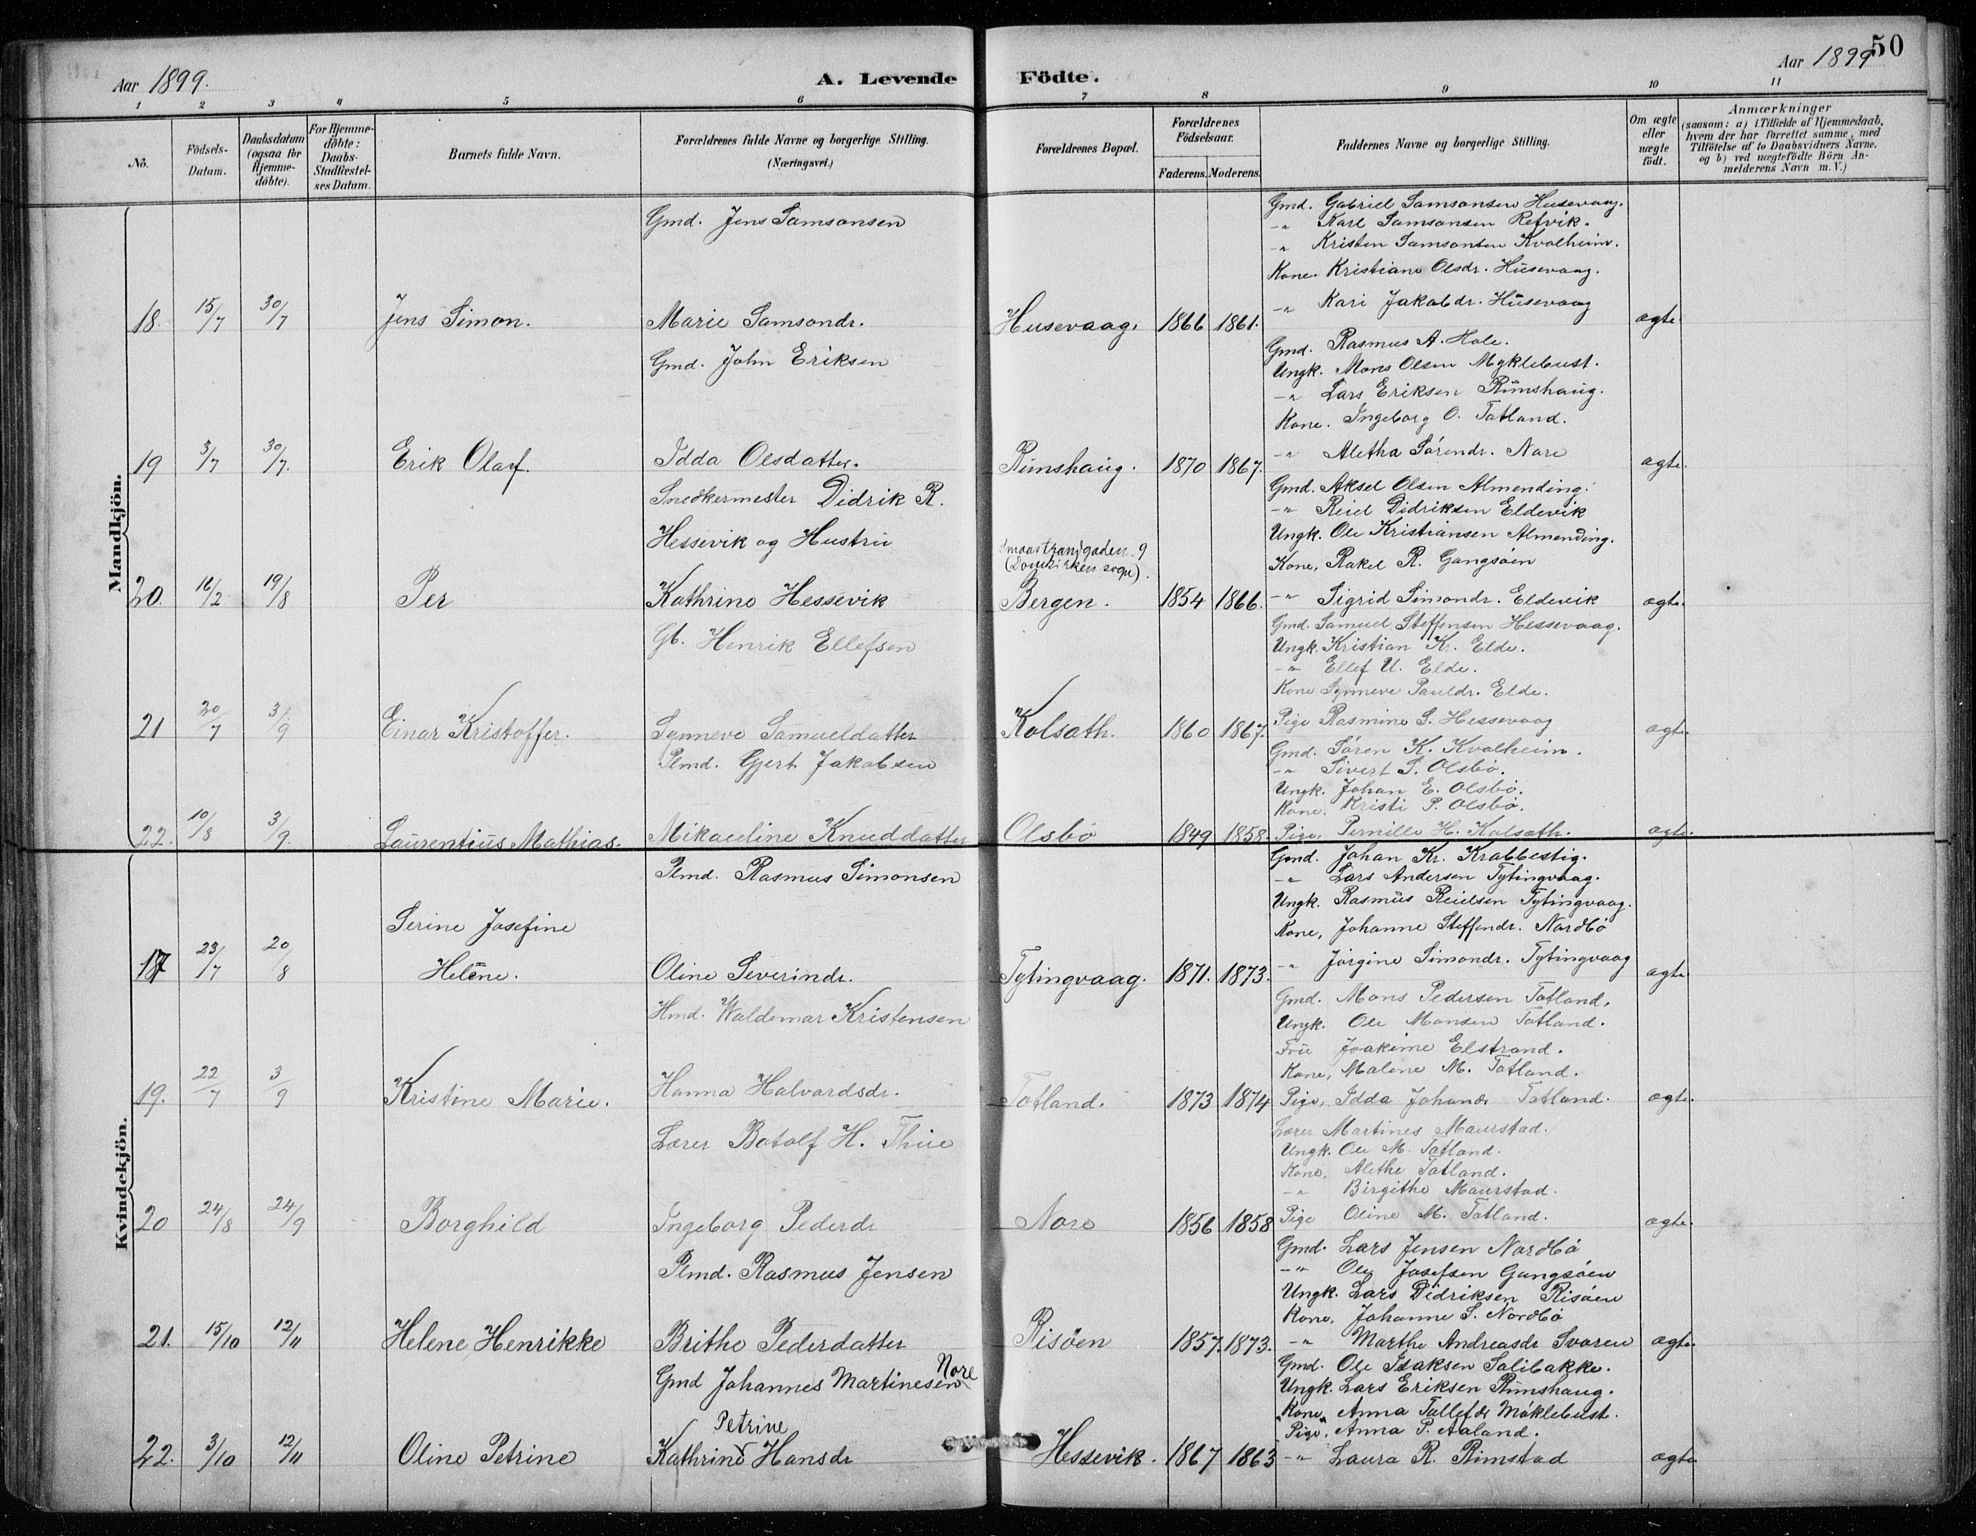 Aar 1899.
A. Levende Födte.
Aar 1899
50
1 2 3 4 5 6 7 8 9 10 11
No.
Födsels-Datum.
Daabsdatum (ogsaa for Hjemmedöbte).
For Hjemmedöbte: Daabs-Stadfæstelses Datum.
Barnets fulde Navn.
Forældrenes fulde Navne og borgerlige Stilling. (Næringsvei.)
Forældrenes Bopæl.
Forældrenes Födselsaar.
Faderens. Moderens.
Faddernes Navne og borgerlige Stilling.
Om ægte eller uægte födt.
Anmærkninger
(saasom: a) i Tilfælde af Hjemmedaab, hvem der har forrettet samme, med Tilföielse af to Daabsvidners Navne, og b) ved uægtefödte Börn Anmelderens Navn m. V.)
Mandkjön.
Gmd. Jens Samsonsen
Gmd. Gabriel Samsonsen Husevaag.
-"- Karl Samsonsen Refvik.
-"- Kristen Samsonsen Kvalheim.
Kone. Kristiane Olsdr. Husevaag.
-"- Kari Jakobdr. Husevaag
18. 15/7 30/7 Jens Simon. Marie Samsondr. Husevaag. 1866 1861. ægte.
Gmd. John Eriksen
Gmd. Rasmus A. Hole.
Ungk. Mons Olsen Myklebust.
-"- Lars Eriksen Rimshaug.
Kone. Ingeborg O. Totland.
-"- Aletha Sörendr. Nore
19 3/7 30/7. Erik Olaf. Idda Olsdatter. Rimshaug. 1870 1867. ægte.
Snedkermester Didrik R.
Hessevik og Hustru
Smaastrandgaden. 9
(Domkirkens sogn).
Gmd. Aksel Olsen Almending.
-"- Reiel Didriksen Eldevik
Ungk. Ole Kristiansen Almending.
Kone, Rakel R. Gangsöen
20. 16/2 19/8 Per Kathrine Hessevik Bergen. 1854 1866. -"- Sigrid Simondr. Eldevik ægte.
Gb. Henrik Ellefsen
Gmd. Samuel Steffensen Hessevaag.
Ungk. Kristian K. Elde.
-"- Ellef U. Elde.
Kone Synneve Pauldr. Elde.
21 20/7 3/9 Einar Kristoffer. Synneve Samueldatter Kolsæth. 1860 1867. Pige Rasmine S. Hessevaag ægte.
Plmd. Gjert Jakobsen
Gmd. Sören K. Kvalheim.
-"- Sivert S. Olsbö.
Ungk. Johan E. Olsbö.
Kone. Kristi P. Olsbö.
22. 10/8 3/9. Laurentius Mathias. Mikaeline Knuddatter Olsbö 1849 1858. Pige, Pernille H. Kolsæth. ægte.
Kvindekjön.
Plmd. Rasmus Simonsen
Gmd. Johan Kr. Krabbestig.
-"- Lars Andersen Tytingvaag.
Ungk. Rasmus Reielsen Tytingvaag.
Kone, Johanne Steffendr. Nordbö
-"- Jörgine Simondr. Tytingvaag
Serine Josefine
23/7 20/8 Helene. Oline Severindr. Tytingvaag. 1871. 1873. ægte
Hmd. Waldemar Kristensen
Gmd. Mons Pedersen Totland.
Ungk. Ole Monsen Totland.
Fru Joakime Elstrand.
Kone, Malene M. Totland.
19. 22/7 3/9 Kristine Marie. Hanna Halvardsdr. Totland. 1873 1874 Pige, Idda Johandr Totland. ægte.
Lærer Botolf H. Thue
Lærer Martines Maurstad.
Ungk. Ole M. Totland.
Kone, Alethe Totland.
-"- Birgithe Maurstad.
20 24/8 24/9 Borghild Ingeborg Pederdr Nore 1856 1858 Pige Oline M. Totland. ægte.
Plmd. Rasmus Jensen
Gmd. Lars Jensen Nordbö
-"- Ole Josefsen Gangsöen
Ungk. Lars Didriksen Risöen
Kone, Johanne S. Nordbö
21. 15/10 12/11 Helene Henrikke Brithe Pederdatter Risöen 1857. 1873. -"- Marthe Andreasdr Svoren ægte.
Gmd Johannes Martinesen Nore
Gmd. Ole Isaksen Solibakke.
Ungk. Lars Eriksen Rimshaug.
Kone, Anna Tollefdr Möklebust.
Pige, Anna P. Aaland.
Petrine
22. 3/10 12/11 Oline Petrine Kathrine Hansdr Hessevik. 1867 1863 -"- Laura R. Rimstad ægte